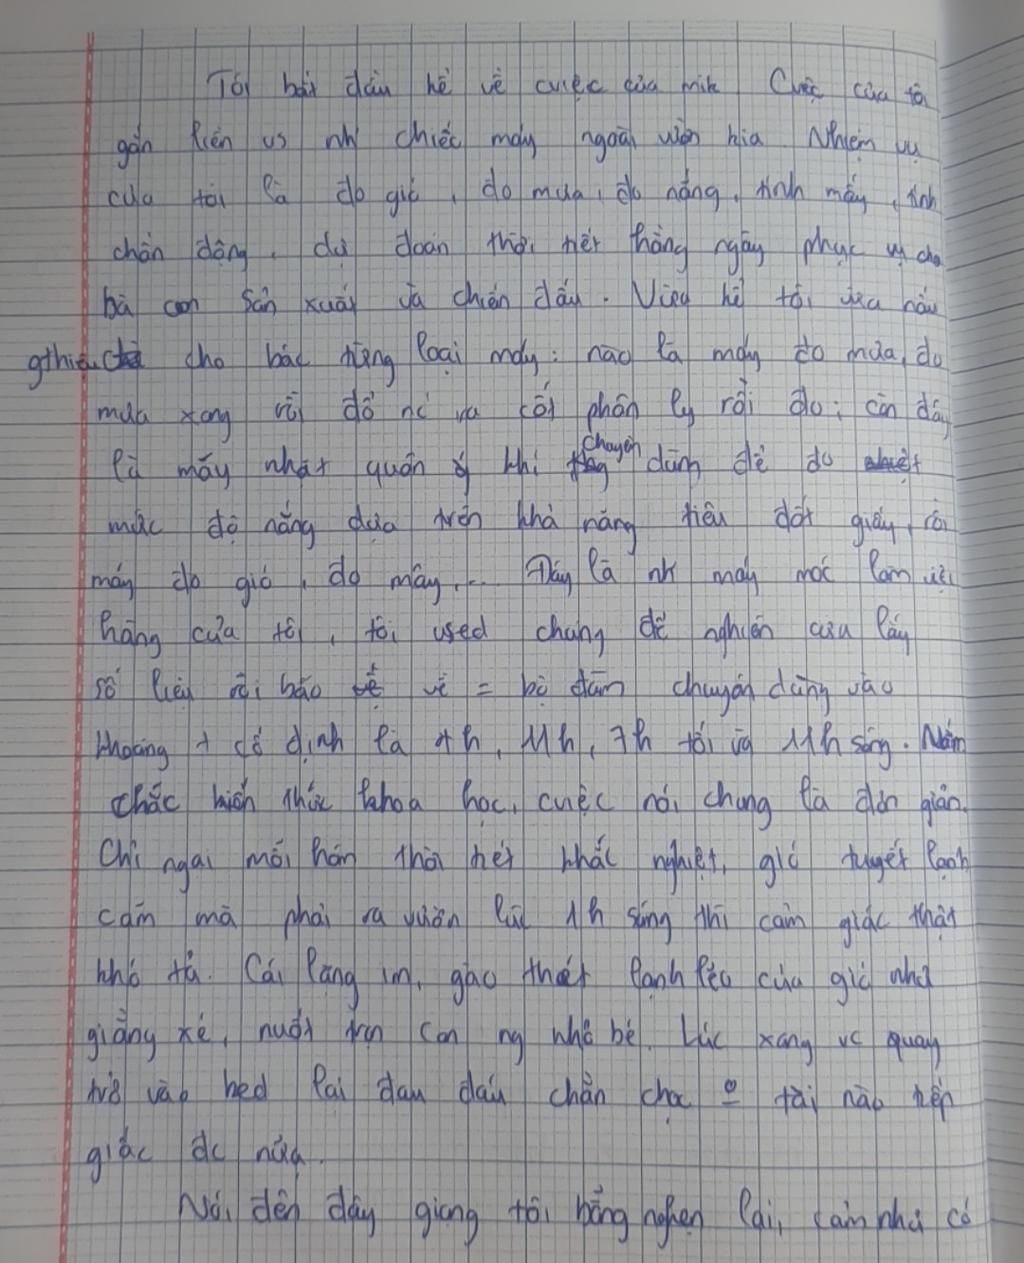 Tôi bắt đầu kể về cviệc của mik Cviệc của tôi
gắn liền vs nh~ chiếc máy ngoài vườn kia. Nhiệm vụ
của tôi là đo gió, đo mưa, đo nắng, tính mây, tính
chấn động, dự đoán thời tiết hằng ngày phục vụ cho
bà con sản xuất và chiến đấu. Vừa kể tôi vừa
gthiệu cho bác từng loại máy: nào là máy đo mưa, đo
mưa xong rồi đổ nc ra cốt phân ly rồi đo; còn đây
là máy nhật quang ký khí chuyên dùng để đo
mức độ nắng dựa trên khả năng thiêu đốt giấy, rồi
máy đo gió, đo mây,... Đây là nh~ máy móc làm việc
hằng của tôi, tôi used chúng để nghiên cứu lấy
số liệu rồi báo về = bộ đàm chuyên dùng vào
khoảng t cố định là 4h, 11h, 7h tối và 11h sáng. Nắm
chắc kiến thức khoa học, cviệc nói chung là đơn giản.
Chỉ ngại mỗi hôm thời tiết khắc nghiệt, gió tuyết lạnh
căm mà phải ra vườn lúc 1h sáng thì cảm giác thật
khó tả. Cái lặng im, gào thét lạnh lẽo của gió như
giằng xé, nuốt trọn con ng nhỏ bé. Lúc xong vc quay
trở vào bed lại đau đáu chằn chọc o tài nào tiếp
giấc đc nữa.
Nói đến đây giọng tôi bỗng nghẹn lại, cảm như có